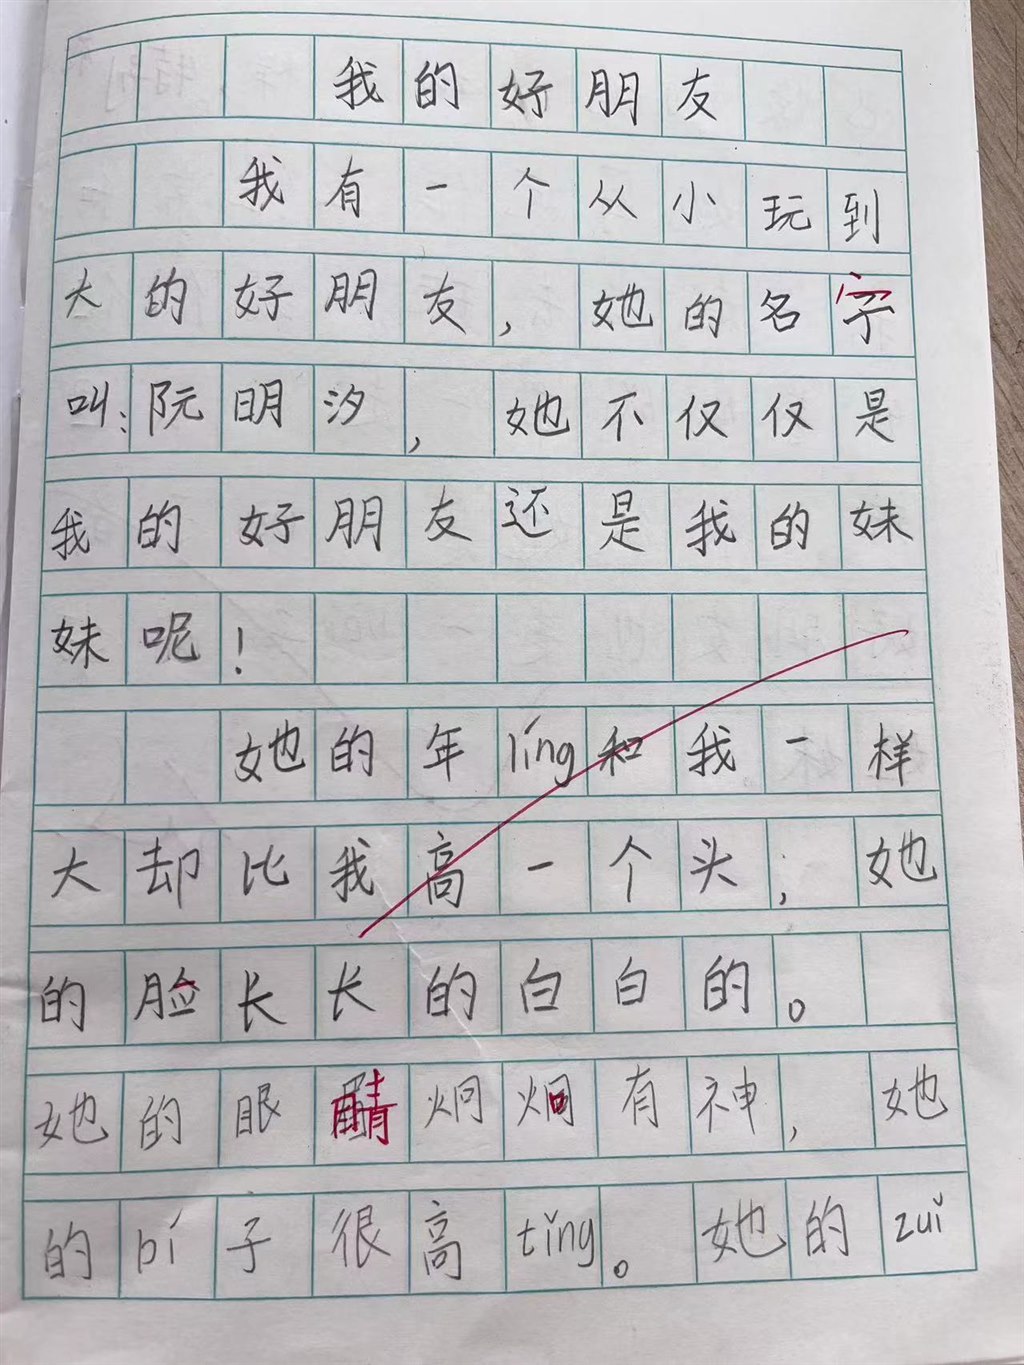 我的好朋友
我有一个从小玩到
大的好朋友，她的名字
叫：阮明汐，她不仅仅是
我的好朋友还是我的妹
妹呢！
她的年líng和我一样
大却比我高一个头，她
的脸长长的白白的。
她的眼睛炯炯有神，她
的bí子很高tǐng。她的zuǐ